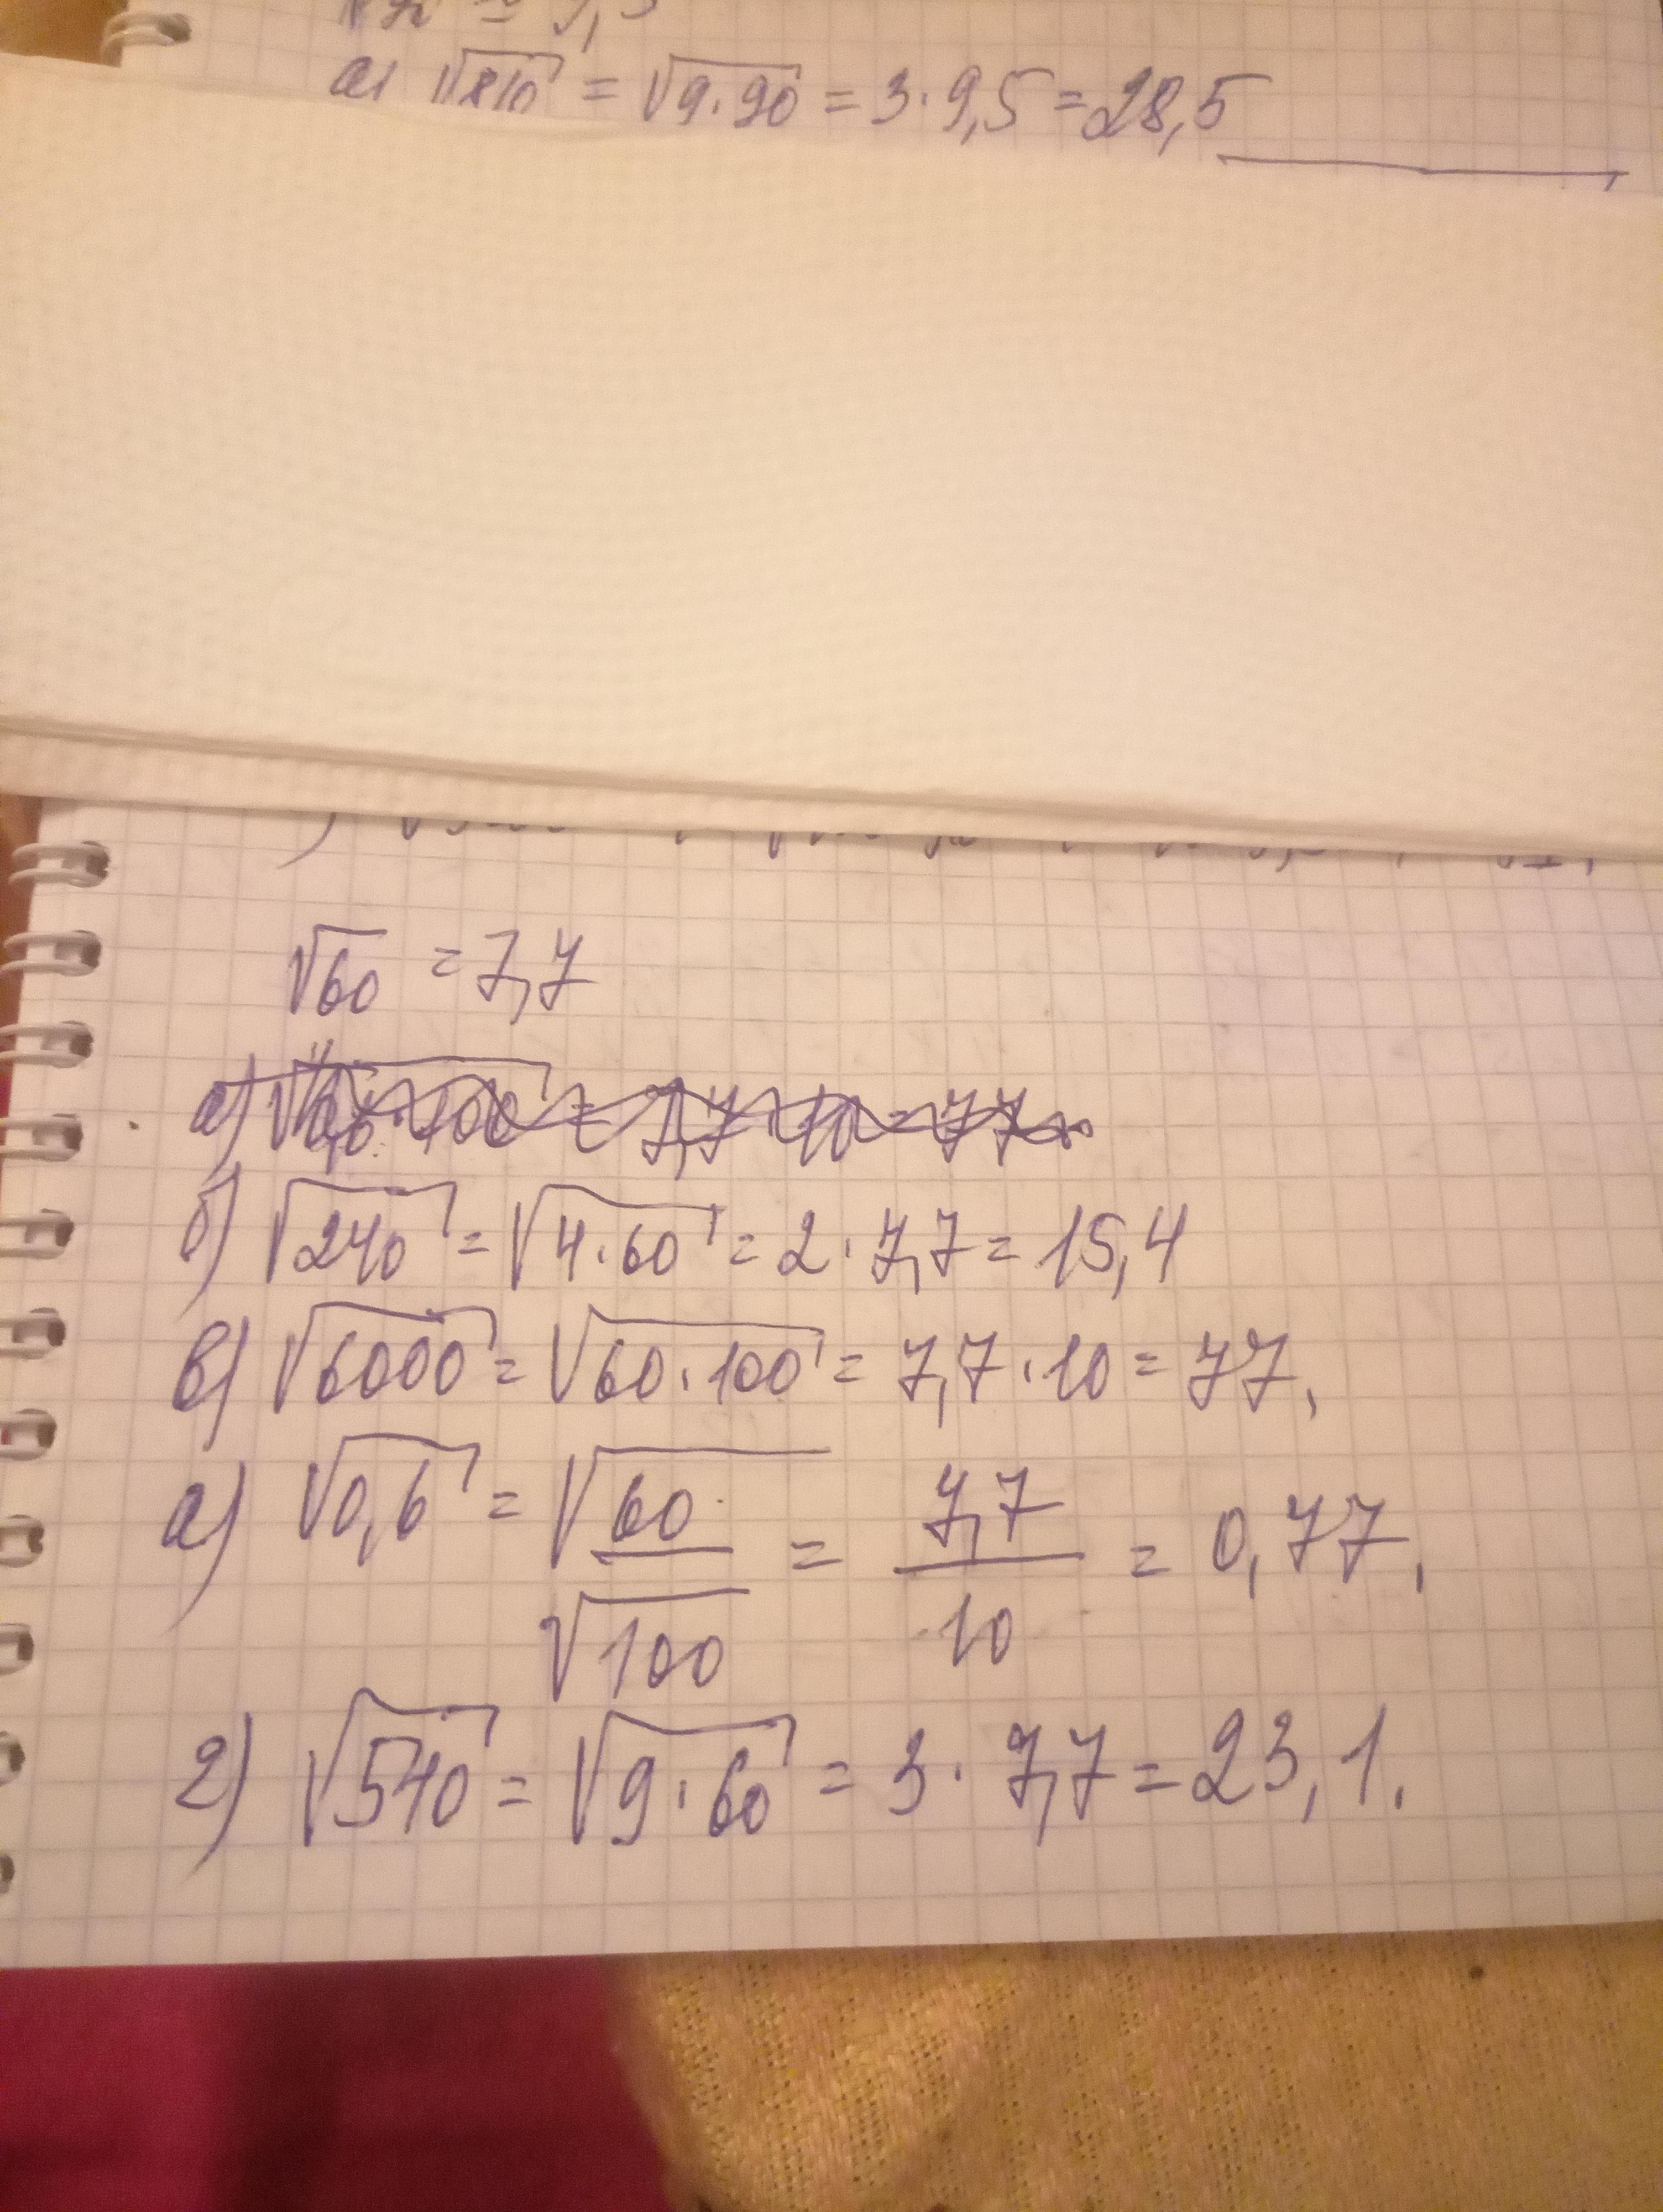 а) √810 = √9·90 = 3·9,5 = 28,5
√60 = 7,7
б) √240 = √4·60 = 2·7,7 = 15,4
в) √6000 = √60·100 = 7,7·10 = 77,
а) √0,6 = √60/√100 = 7,7/10 = 0,77.
г) √540 = √9·60 = 3·7,7 = 23,1.